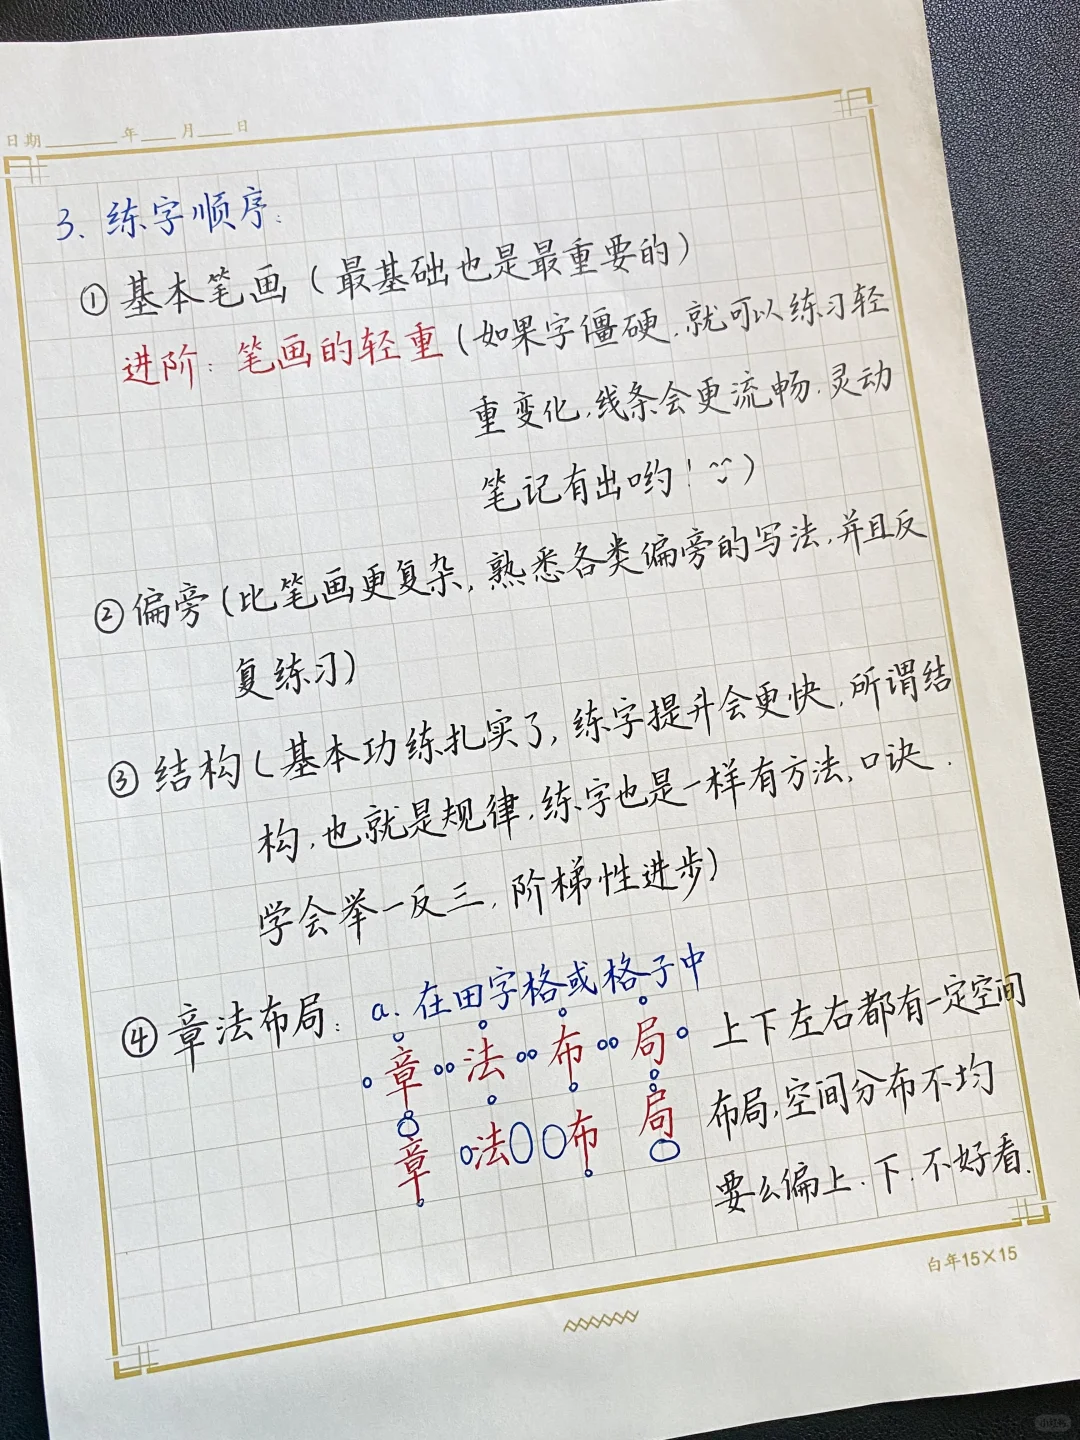 日期 年 月 日
3. 练字顺序:
① 基本笔画(最基础也是最重要的)
进阶: 笔画的轻重(如果字僵硬,就可以练习轻
重变化,线条会更流畅.灵动
笔记有出哟!)
② 偏旁(比笔画更复杂,熟悉各类偏旁的写法,并且反
复练习)
③ 结构(基本功练扎实了,练字提升会更快,所谓结
构,也就是规律,练字也是一样有方法,口诀.
学会举一反三,阶梯性进步)
④ 章法布局: a. 在田字格或格子中
章 法 布 局 上下左右都有一定空间
章 法 布 局 布局,空间分布不均
要么偏上.下.不好看.
白年15×15
小红书